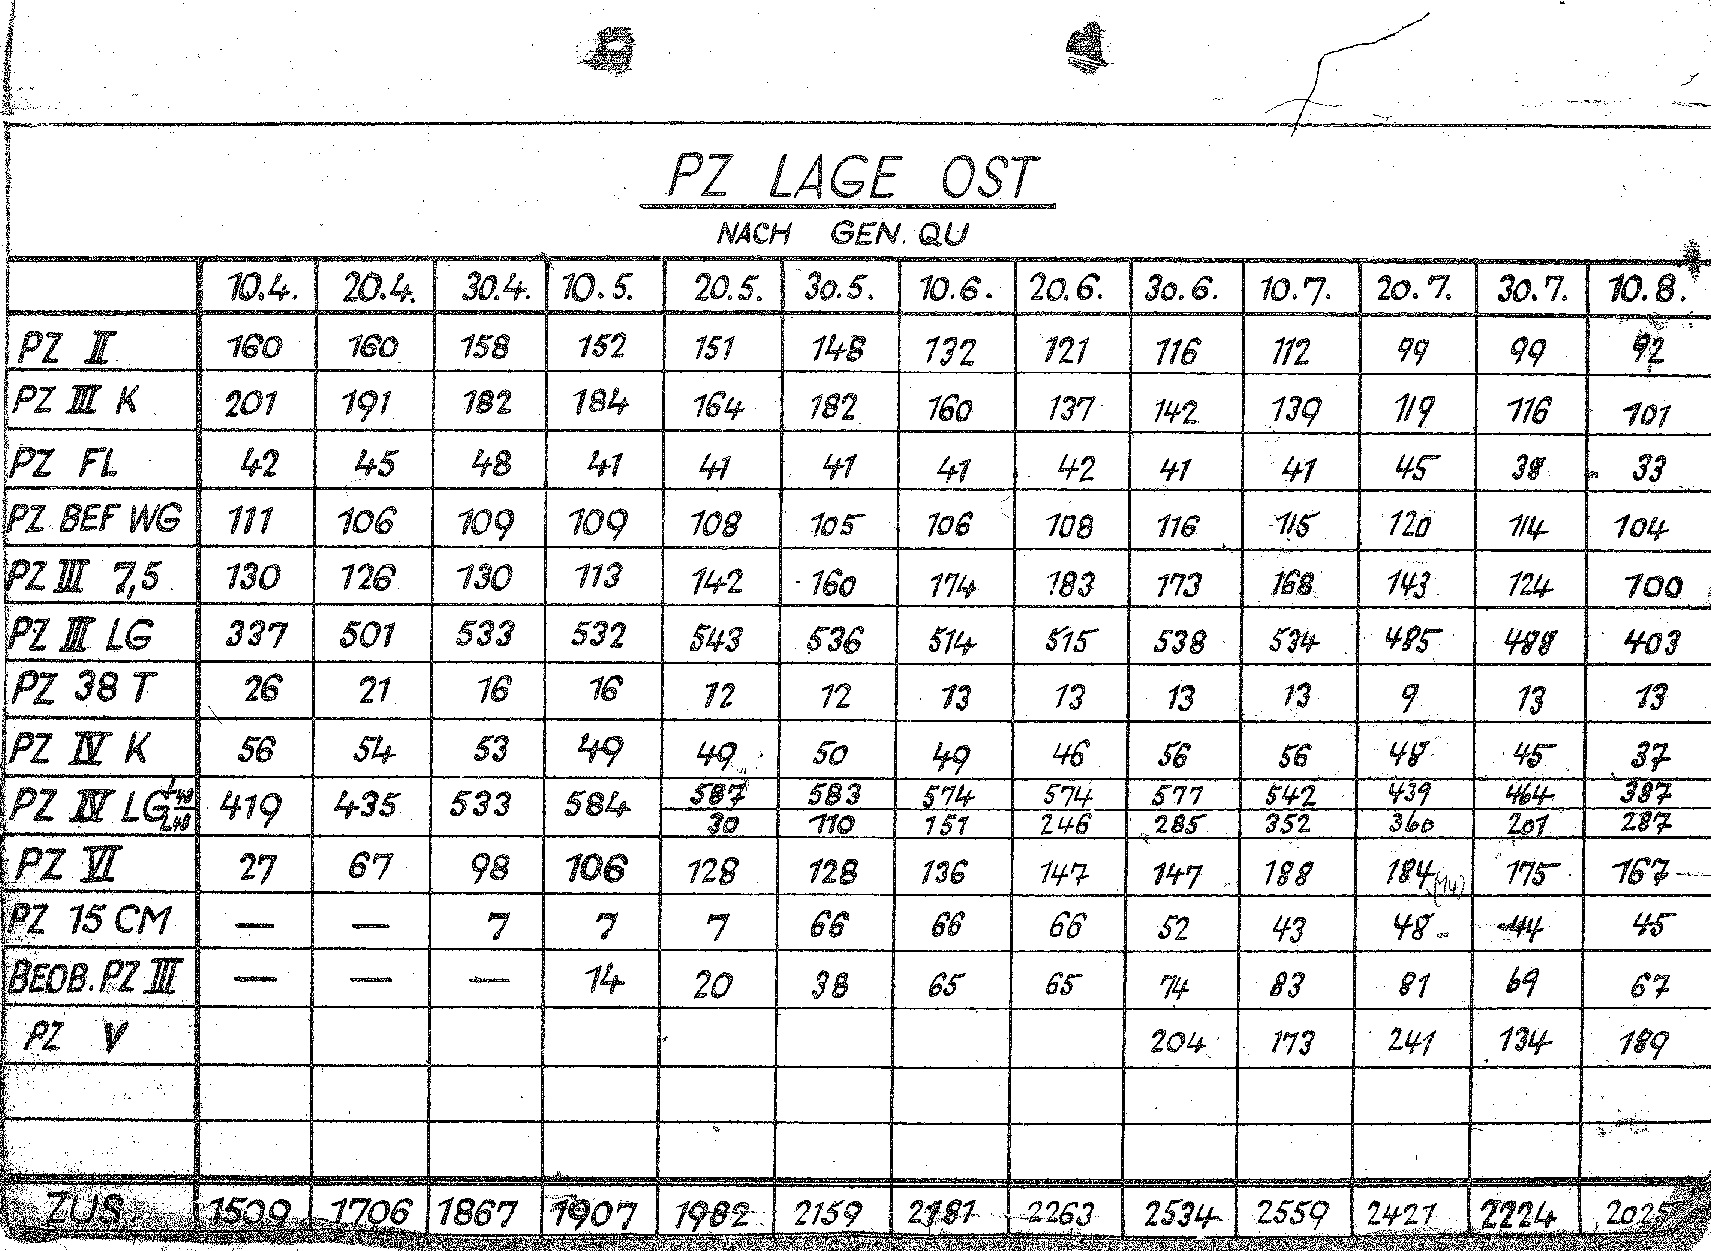 PZ LAGE OST
NACH GEN. QU
10.4. 20.4. 30.4. 10.5. 20.5. 30.5. 10.6. 20.6. 30.6. 10.7. 20.7. 30.7. 10.8.
PZ II 160 160 158 152 151 148 132 121 116 112 99 99 92
PZ III K 201 191 182 184 164 182 160 137 142 139 119 116 101
PZ FL 42 45 48 41 41 41 41 42 41 41 45 38 33
PZ BEF WG 111 106 109 109 108 105 106 108 116 115 120 114 104
PZ III 7,5 130 126 130 113 142 160 174 183 173 168 143 124 100
PZ III LG 337 501 533 532 543 536 514 515 538 534 485 488 403
PZ 38 T 26 21 16 16 12 12 13 13 13 13 9 13 13
PZ IV K 56 54 53 49 49 50 49 46 56 56 48 45 37
PZ IV LG 419 435 533 584 587 583 574 574 577 542 439 464 387
30 110 151 246 285 352 360 201 287
PZ VI 27 67 98 106 128 128 136 147 147 188 184 175 167
PZ 15 CM — — 7 7 7 66 66 66 52 43 48 44 45
BEOB. PZ III — — — 14 20 38 65 65 74 83 81 69 67
PZ V 204 173 241 134 189
ZUS. 1509 1706 1867 1907 1982 2159 2181 2263 2534 2559 2421 2224 2025